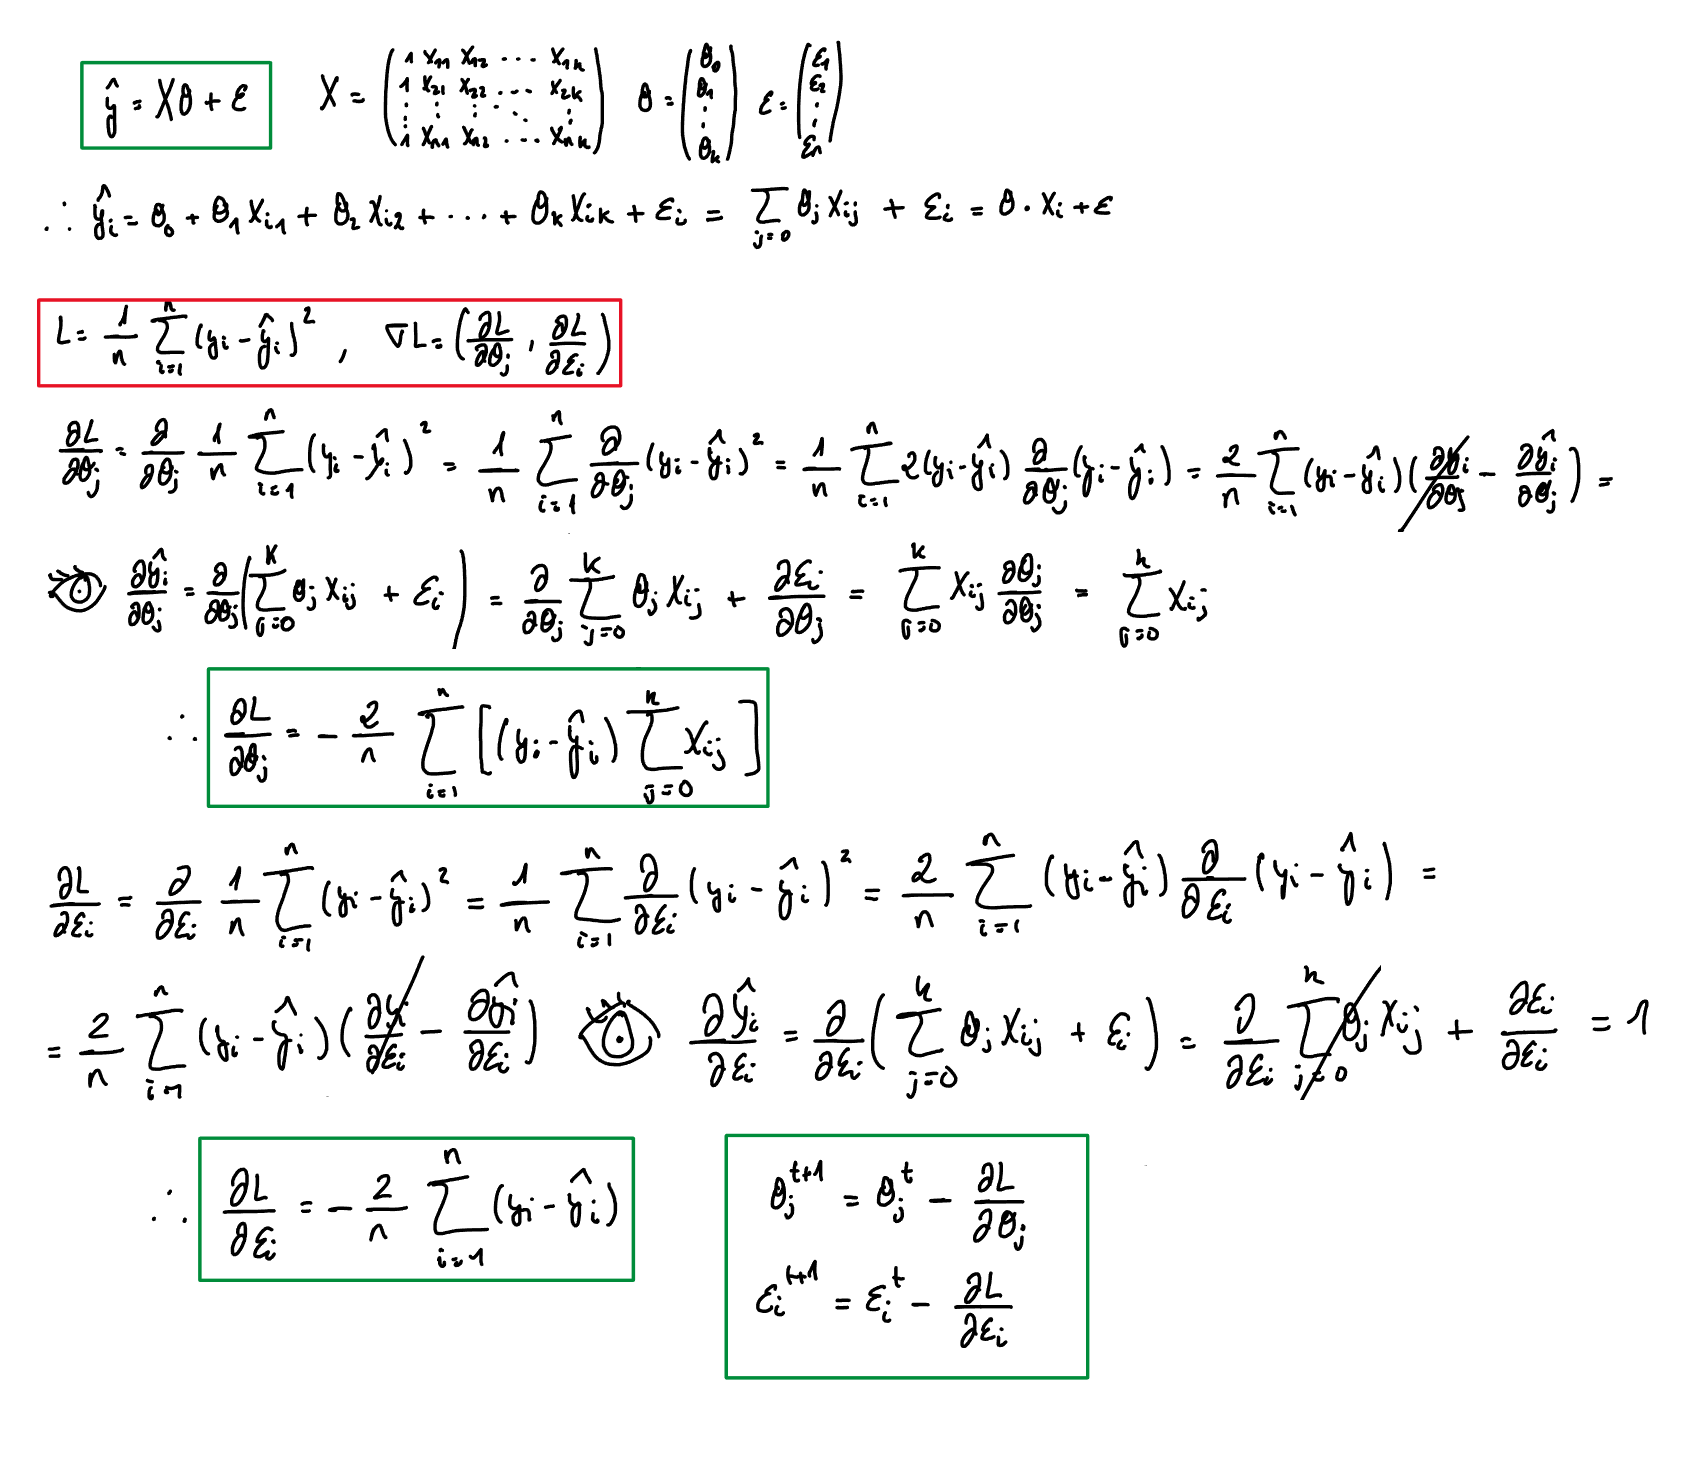 ŷ = Xθ + ε    X = ( 1 x₁₁ x₁₂ ⋯ x₁ₖ ; 1 x₂₁ x₂₂ ⋯ x₂ₖ ; ⋮ ⋮ ⋮ ⋱ ⋮ ; 1 xₙ₁ xₙ₂ ⋯ xₙₖ )    θ = ( θ₀ ; θ₁ ; ⋮ ; θₖ )    ε = ( ε₁ ; ε₂ ; ⋮ ; εₙ )
∴ ŷᵢ = θ₀ + θ₁ xᵢ₁ + θ₂ xᵢ₂ + ⋯ + θₖ xᵢₖ + εᵢ = Σ_{j=0} θⱼ xᵢⱼ + εᵢ = θ · xᵢ + ε
L = 1/n Σ_{i=1}^{n} (yᵢ - ŷᵢ)² , ∇L = ( ∂L/∂θⱼ , ∂L/∂εᵢ )
∂L/∂θⱼ = ∂/∂θⱼ 1/n Σ_{i=1}^{n} (yᵢ - ŷᵢ)² = 1/n Σ_{i=1}^{n} ∂/∂θⱼ (yᵢ - ŷᵢ)² = 1/n Σ_{i=1}^{n} 2(yᵢ - ŷᵢ) ∂/∂θⱼ (yᵢ - ŷᵢ) = 2/n Σ_{i=1}^{n} (yᵢ - ŷᵢ)( ∂yᵢ/∂θⱼ - ∂ŷᵢ/∂θⱼ ) =
∂ŷᵢ/∂θⱼ = ∂/∂θⱼ ( Σ_{j=0}^{k} θⱼ xᵢⱼ + εᵢ ) = ∂/∂θⱼ Σ_{j=0}^{k} θⱼ xᵢⱼ + ∂εᵢ/∂θⱼ = Σ_{j=0}^{k} xᵢⱼ ∂θⱼ/∂θⱼ = Σ_{j=0}^{k} xᵢⱼ
∴ ∂L/∂θⱼ = - 2/n Σ_{i=1}^{n} [ (yᵢ - ŷᵢ) Σ_{j=0}^{k} xᵢⱼ ]
∂L/∂εᵢ = ∂/∂εᵢ 1/n Σ_{i=1}^{n} (yᵢ - ŷᵢ)² = 1/n Σ_{i=1}^{n} ∂/∂εᵢ (yᵢ - ŷᵢ)² = 2/n Σ_{i=1}^{n} (yᵢ - ŷᵢ) ∂/∂εᵢ (yᵢ - ŷᵢ) =
= 2/n Σ_{i=1}^{n} (yᵢ - ŷᵢ)( ∂yᵢ/∂εᵢ - ∂ŷᵢ/∂εᵢ )    ∂ŷᵢ/∂εᵢ = ∂/∂εᵢ ( Σ_{j=0}^{k} θⱼ xᵢⱼ + εᵢ ) = ∂/∂εᵢ Σ_{j=0}^{k} θⱼ xᵢⱼ + ∂εᵢ/∂εᵢ = 1
∴ ∂L/∂εᵢ = - 2/n Σ_{i=1}^{n} (yᵢ - ŷᵢ)
θⱼ^{t+1} = θⱼ^{t} - ∂L/∂θⱼ
εᵢ^{t+1} = εᵢ^{t} - ∂L/∂εᵢ